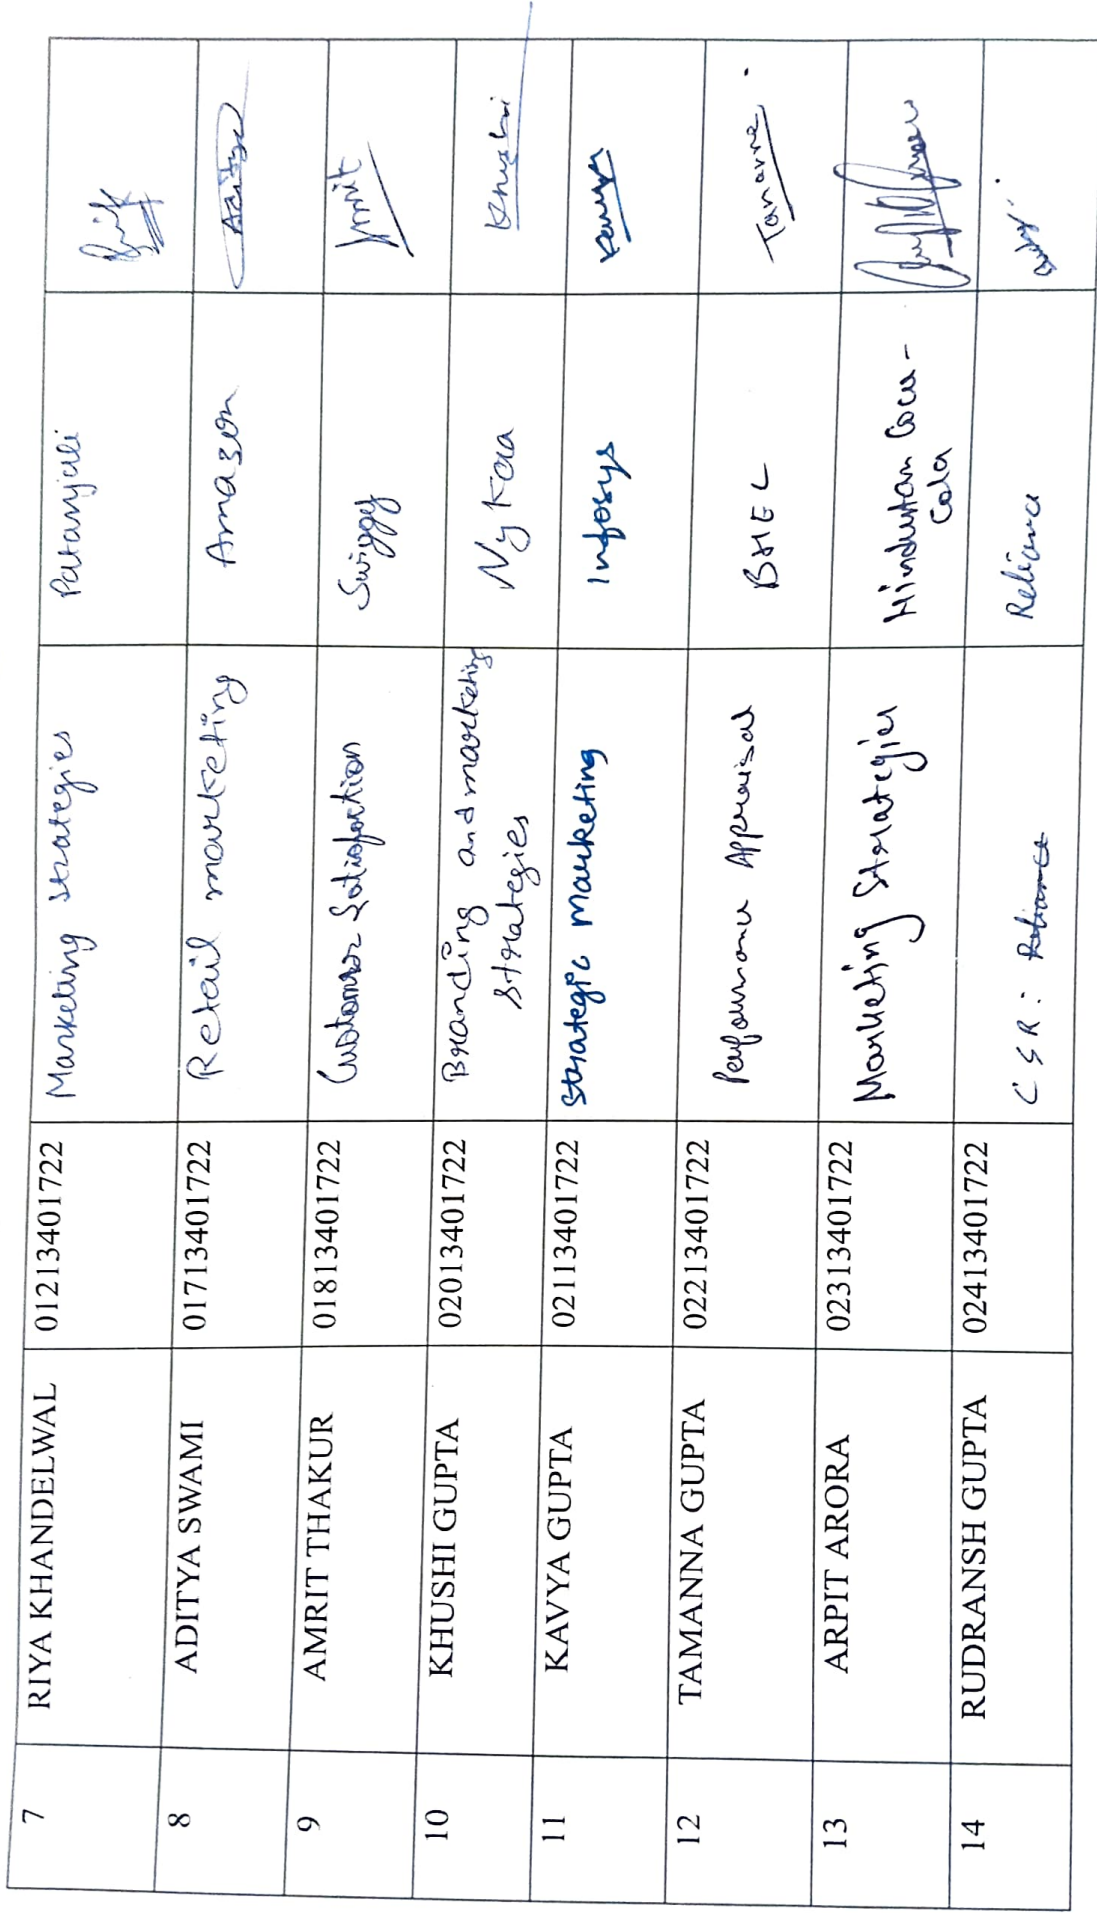 7 RIYA KHANDELWAL 01213401722 Marketing strategies Patanjali
8 ADITYA SWAMI 01713401722 Retail marketing Amazon Aditya
9 AMRIT THAKUR 01813401722 Customer Satisfaction Swiggy Amrit
10 KHUSHI GUPTA 02013401722 Branding and marketing Nykaa Khushi
strategies
11 KAVYA GUPTA 02113401722 Strategic Marketing Infosys Kavya
12 TAMANNA GUPTA 02213401722 Performance Appraisal BHEL
13 ARPIT ARORA 02313401722 Marketing Strategies Hindustan Coca-
Cola
14 RUDRANSH GUPTA 02413401722 CSR: Reliance Reliance